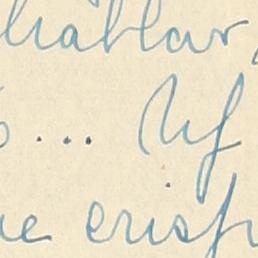 hablar,
... Uf
ue crisp